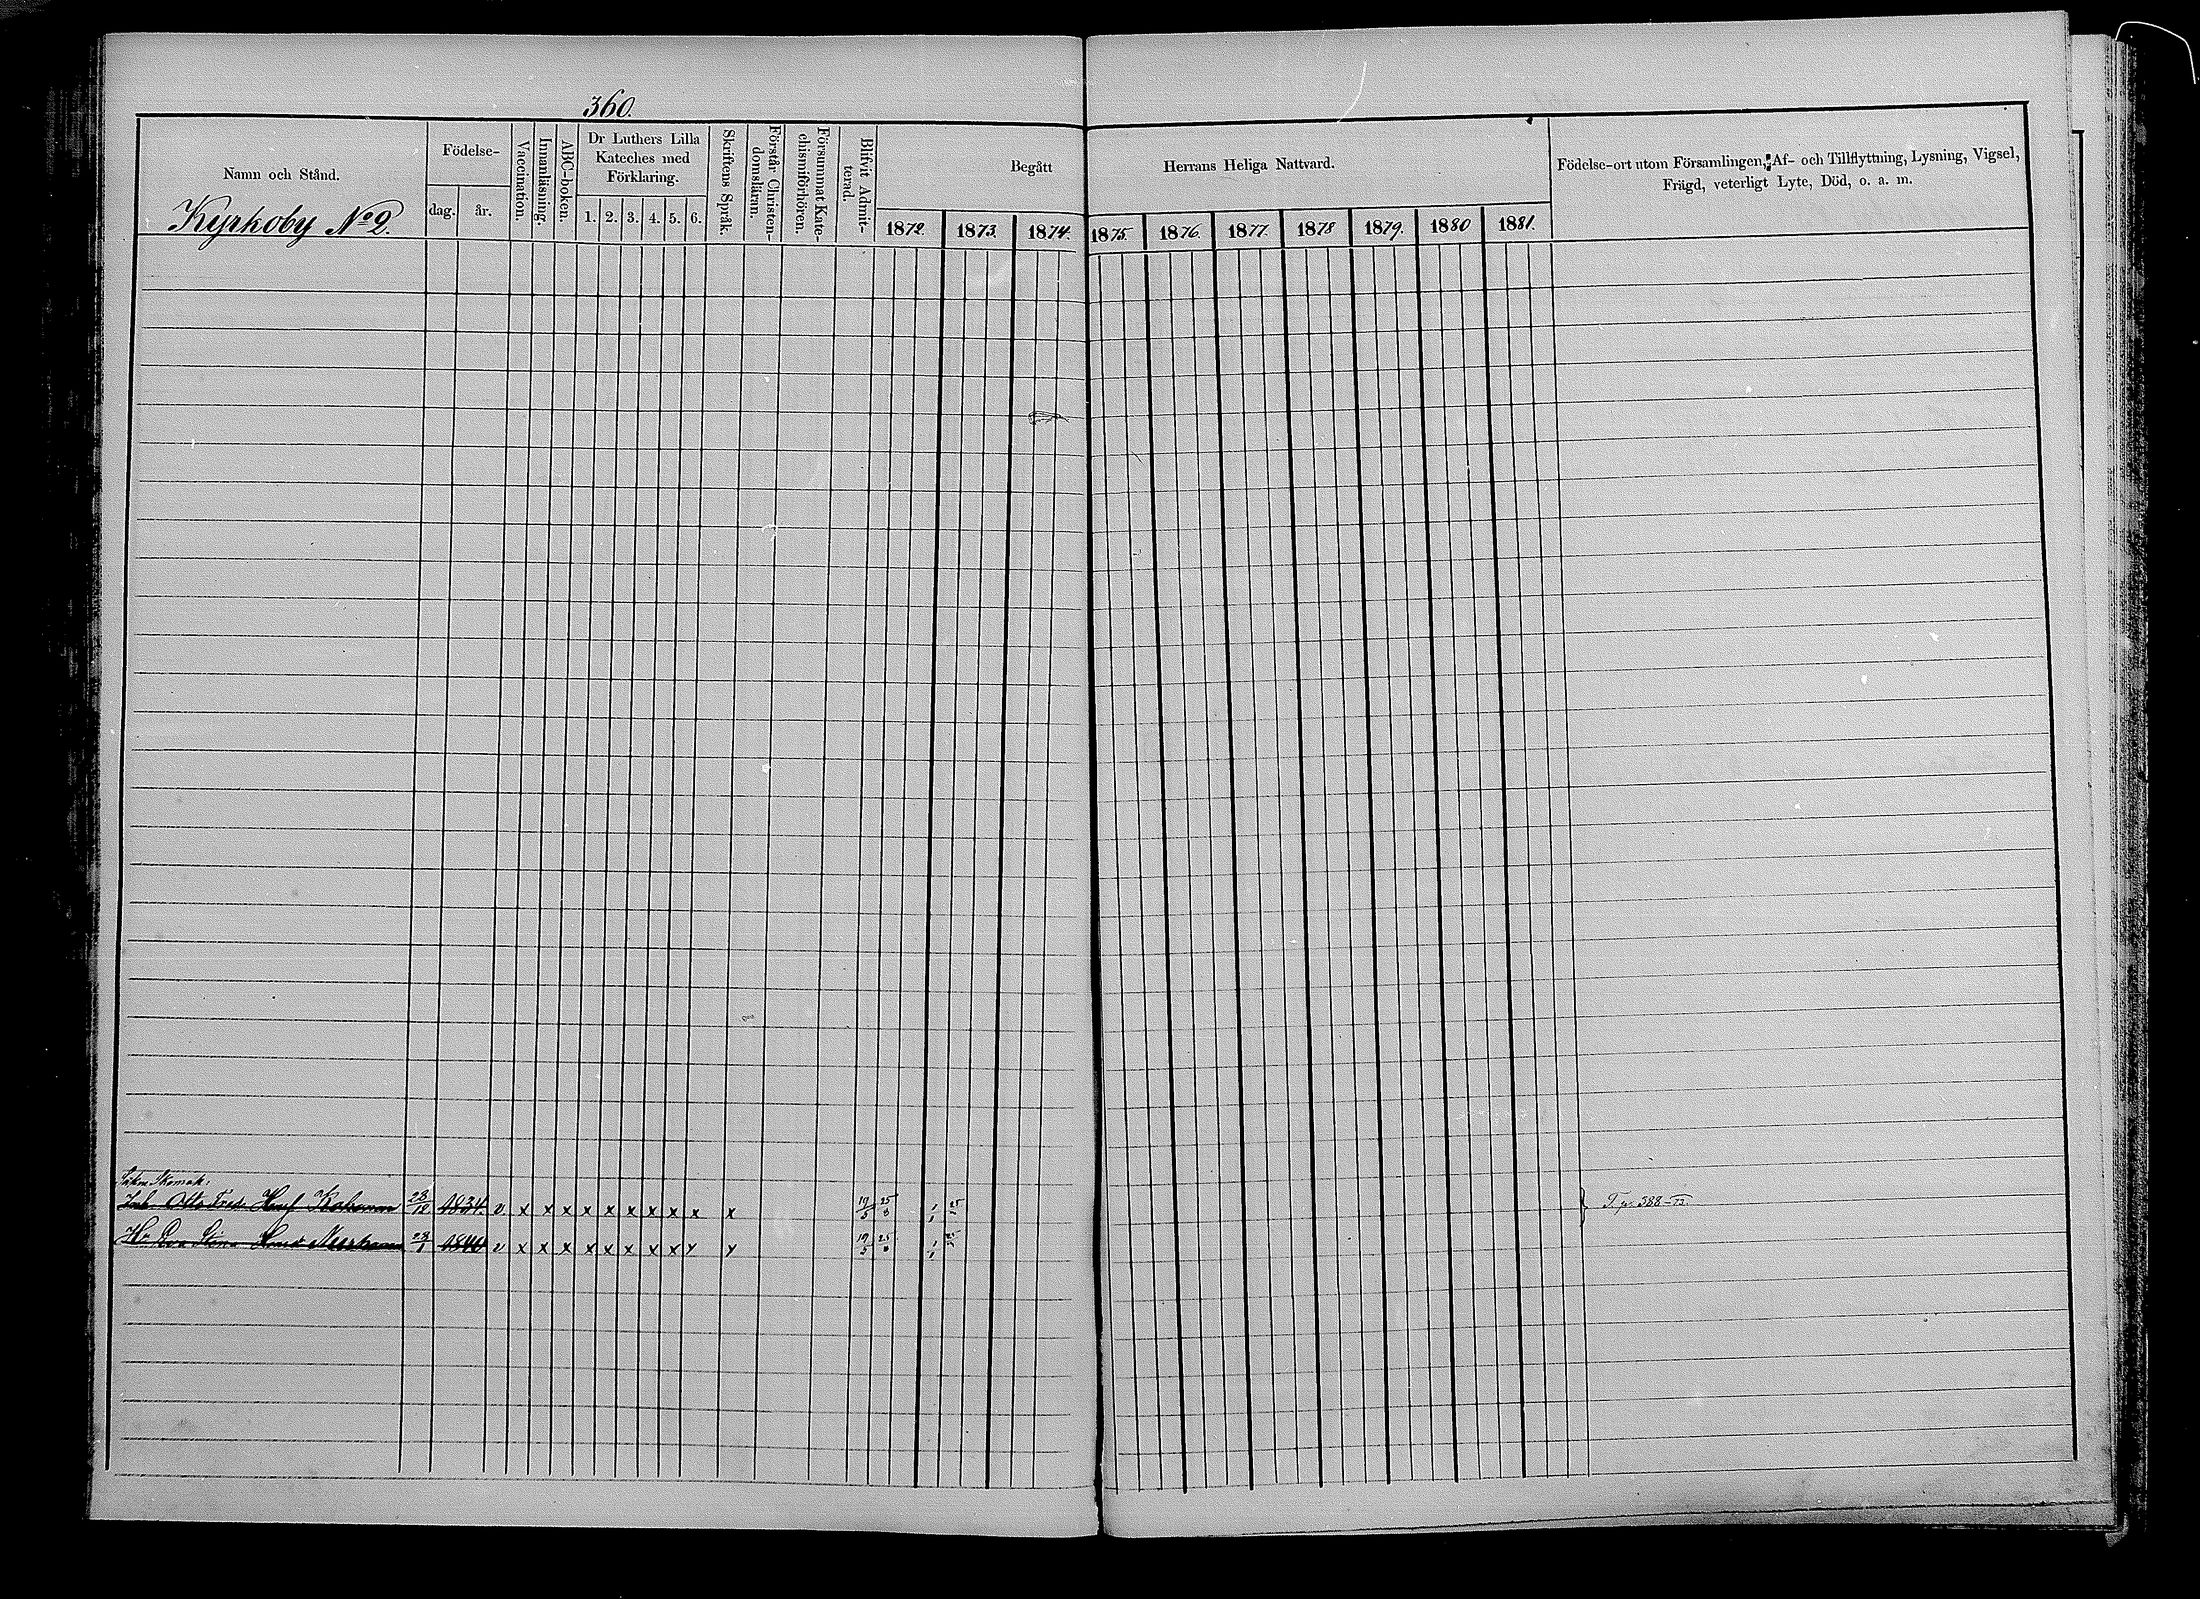 360.
Namn och Stånd.
Kyrkoby No 2.
Födelse-
dag. år.
Vaccination.
Innanläsning.
ABC-boken.
Dr Luthers Lilla
Kateches med
Förklaring.
1. 2. 3. 4. 5. 6.
Skriftens Språk.
Förstår Christen-
domsläran.
Försummat Kate-
chismiförhören.
Blifvit Admit-
terad.
Begått Herrans Heliga Nattvard.
1872. 1873. 1874. 1875. 1876. 1877. 1878 1879. 1880 1881.
Födelse-ort utom Församlingen, Af- och Tillflyttning, Lysning, Vigsel,
Frägd, veterligt Lyte, Död, o. a. m.
Skomak:
Otto Fred. 23/12 1834. v x x x x x x x x x x 19/5 25/8 1/1 25 } T. p. 388-73.
Hu Eva Stina 23/1 v x x x x x x x x y y 19/5 25/8 1/1 25